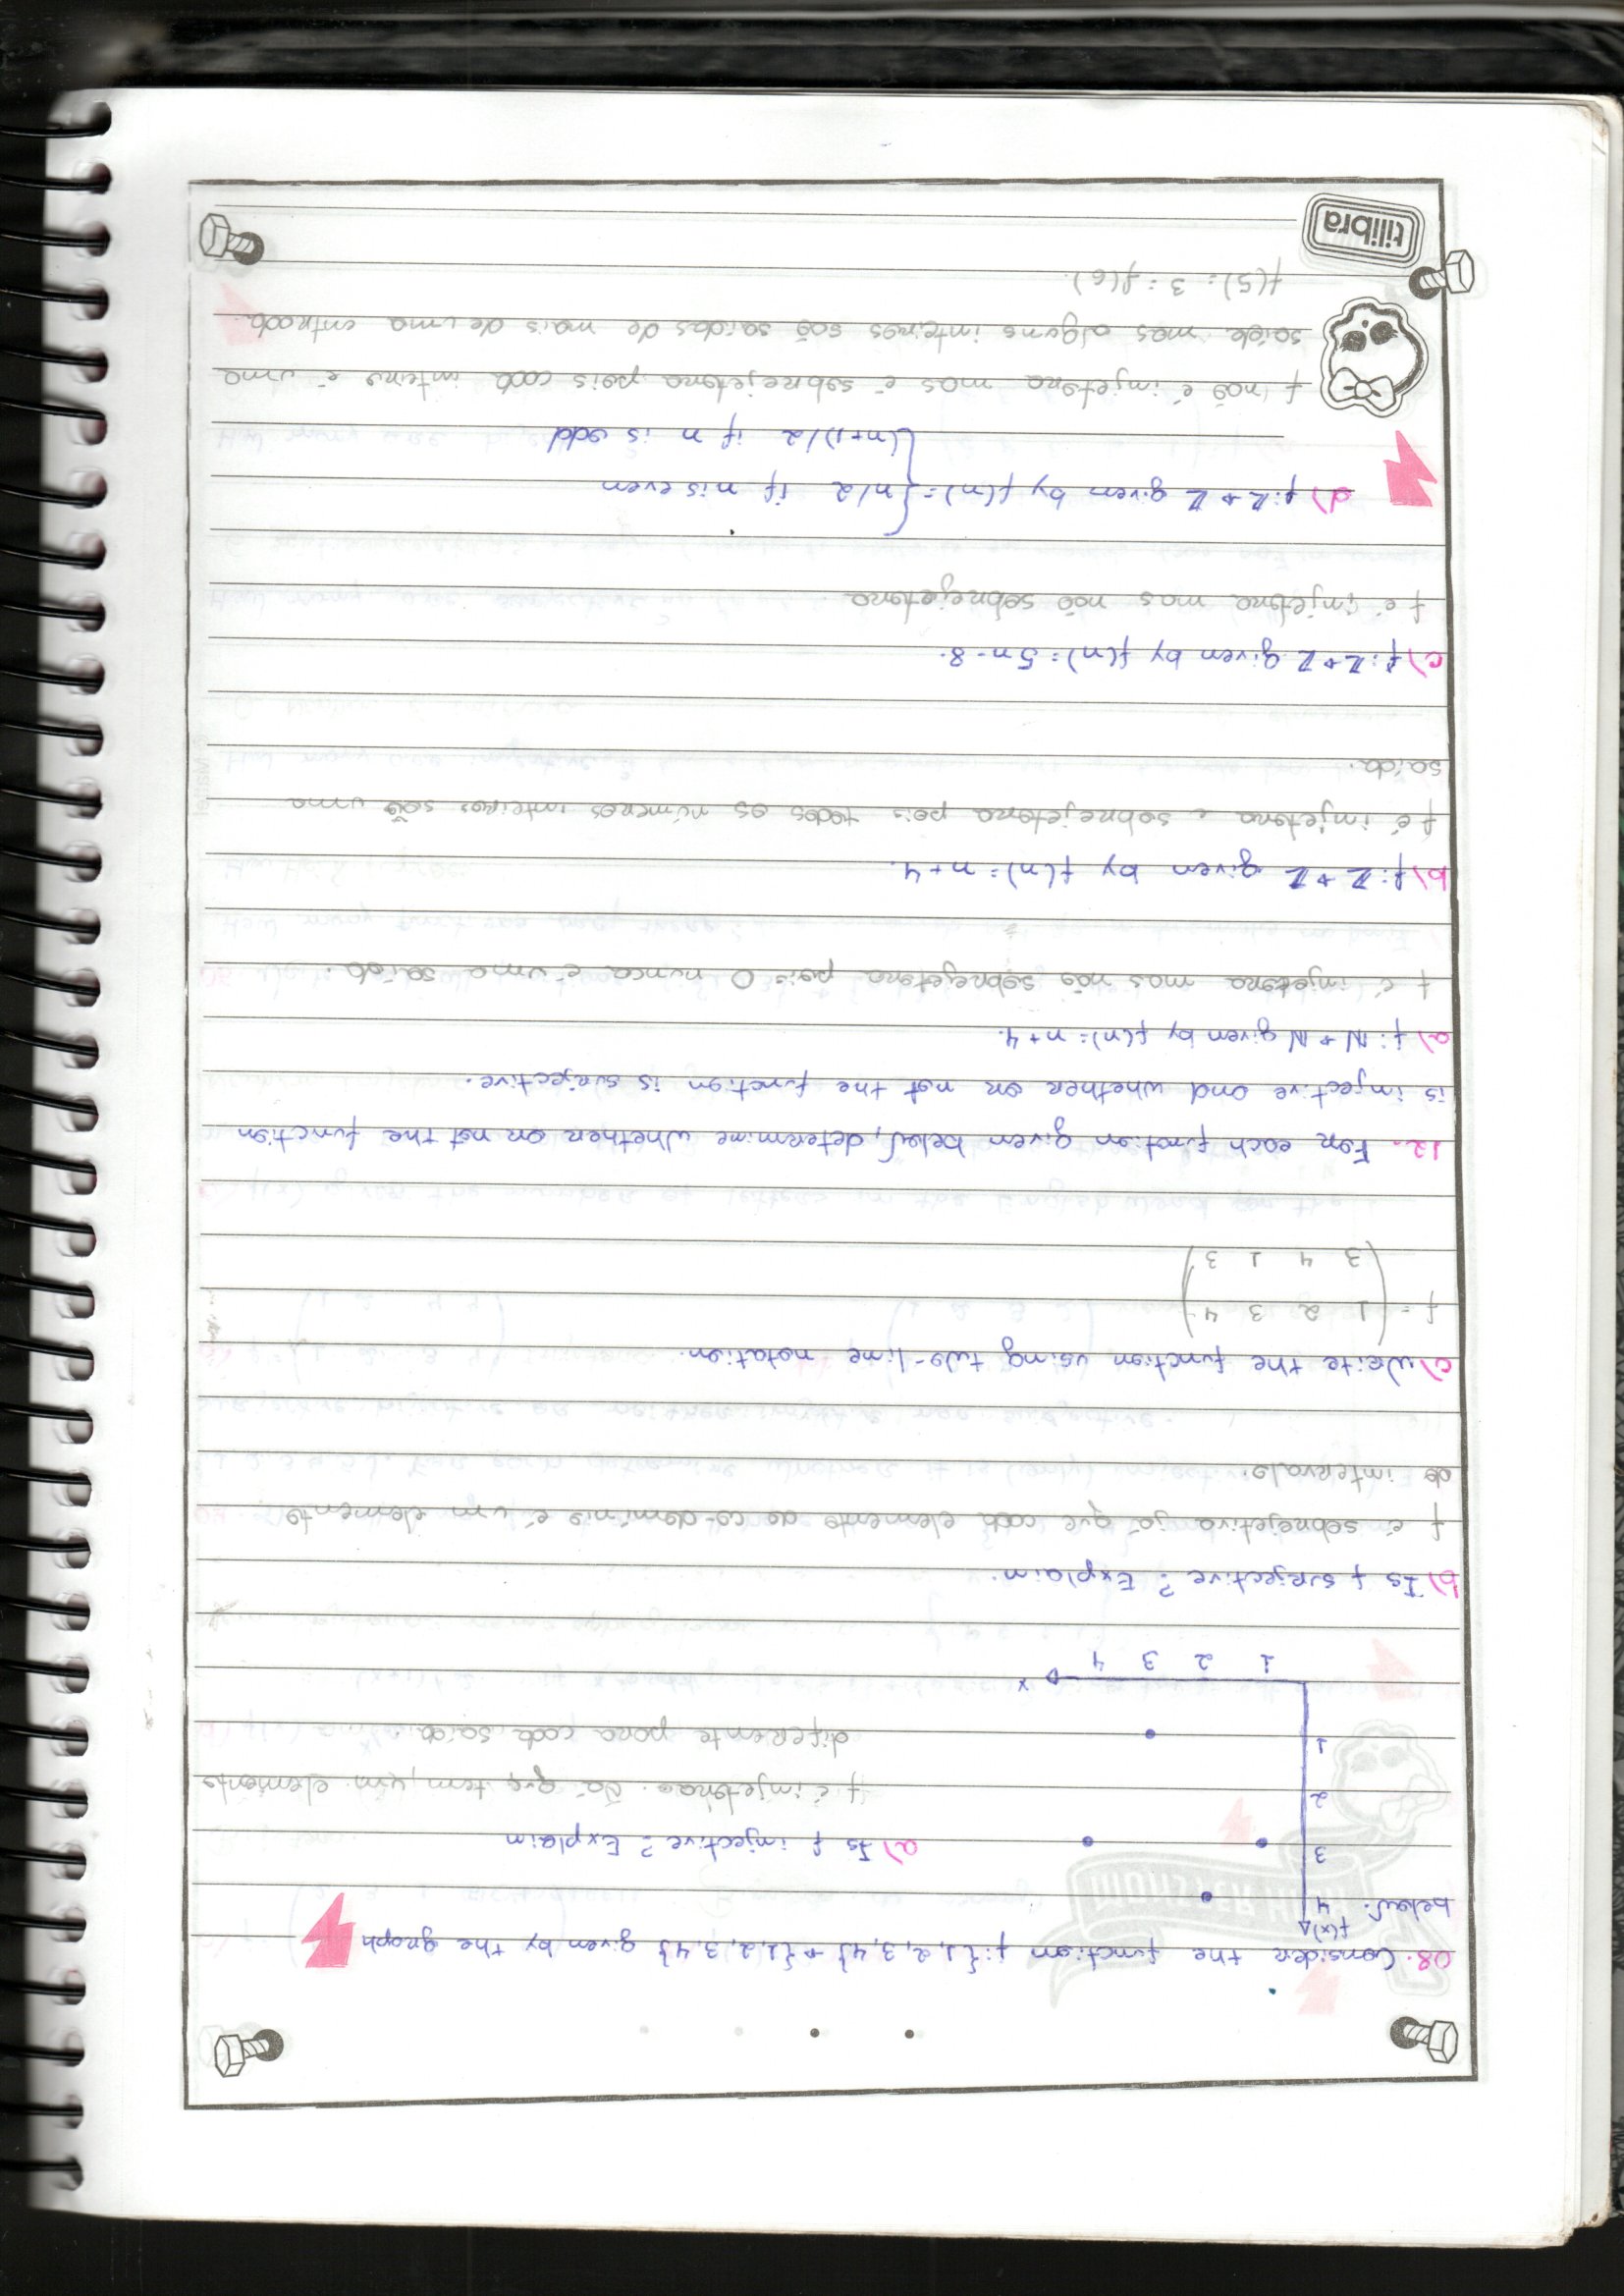 08. Consider the function f:{1,2,3,4} → {1,2,3,4} given by the graph
below.
f(x)
4
3
2
1
1 2 3 4 x
a) Is f injective? Explain
f é injetora. Já que tem um elemento
diferente para cada saída
b) Is f surjective? Explain.
f é sobrejetiva já que cada elemento do co-domínio é um elemento
do intervalo.
c) Write the function using two-line notation.
f = ( 1 2 3 4 )
( 3 4 1 3 )
12. For each function given below, determine whether or not the function
is injective and whether or not the function is surjective.
a) f: N → N given by f(n) = n + 4.
f é injetora mas não sobrejetora pois 0 nunca é uma saída.
b) f: Z → Z given by f(n) = n + 4.
f é injetora e sobrejetora pois todos os números inteiros são uma
saída.
c) f: Z → Z given by f(n) = 5n - 8.
f é injetora mas não sobrejetora
d) f: Z → Z given by f(n) = { n/2 if n is even
(n+1)/2 if n is odd
f não é injetora mas é sobrejetora pois cada inteiro é uma
saída mas alguns inteiros são saídas de mais de uma entrada.
f(5) = 3 = f(6).
tilibra